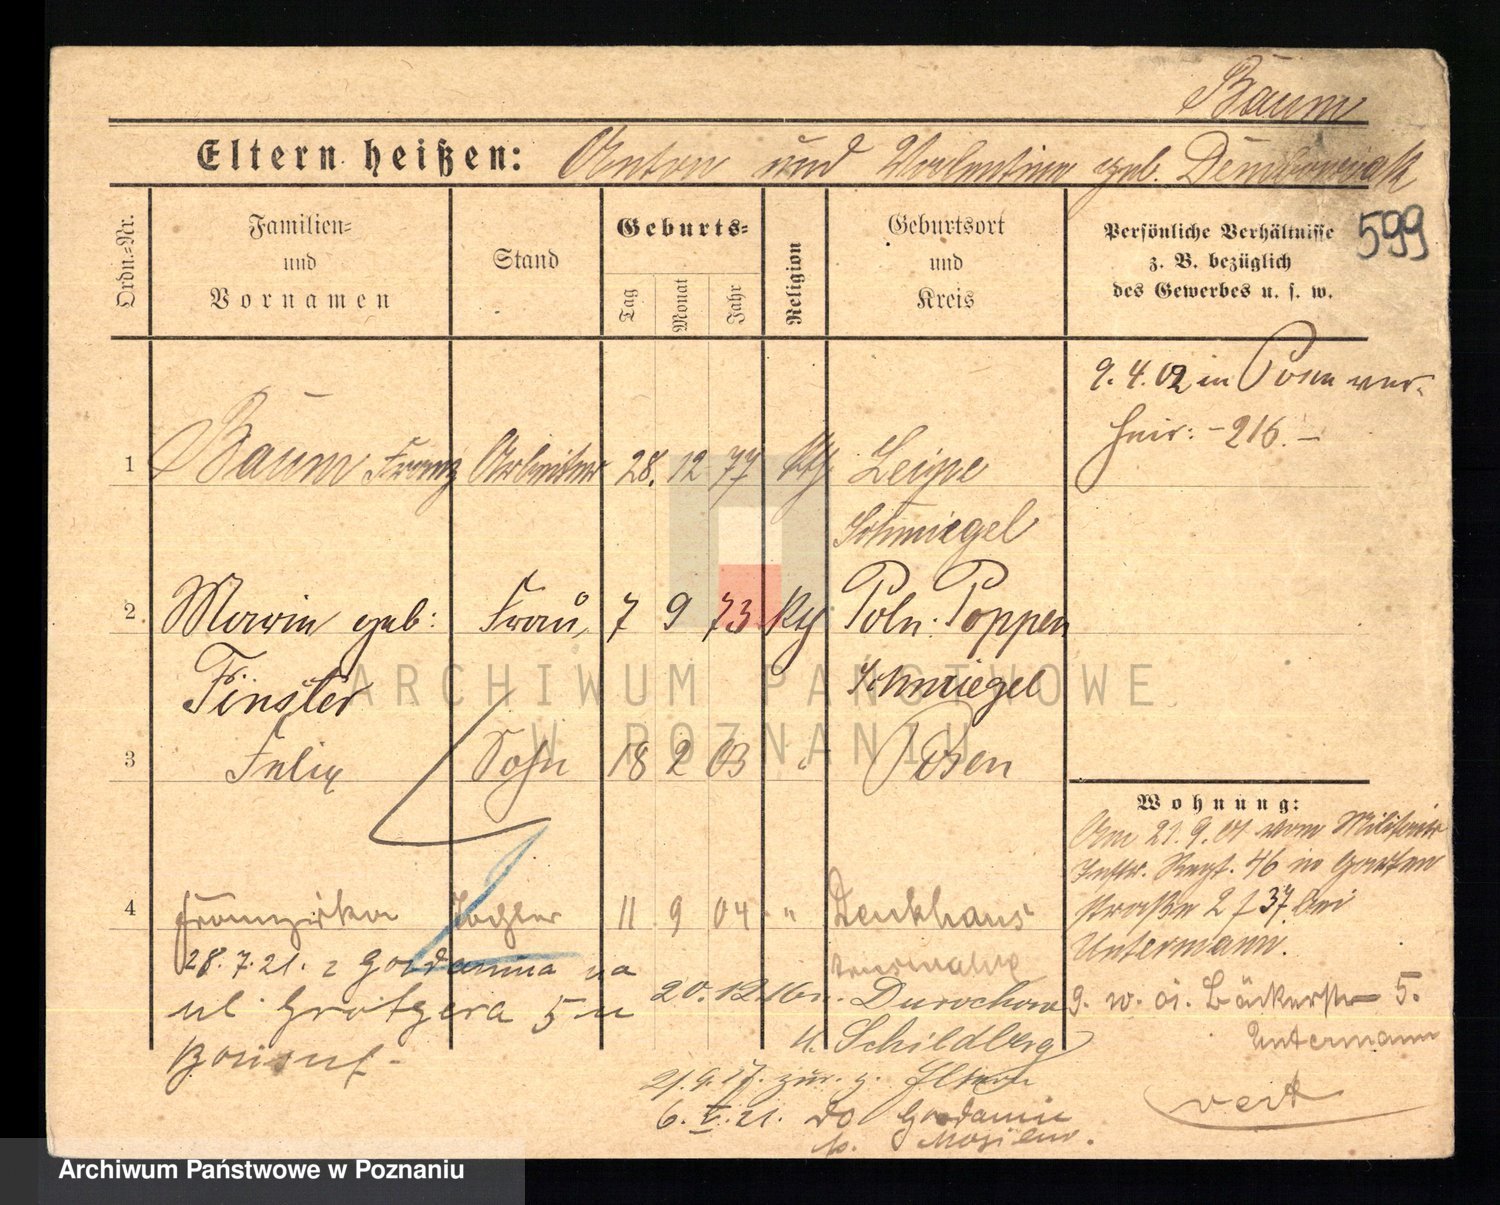 Baum
Eltern heißen: Anton und Valentine geb. Dembowiak
599
Ordn.-Nr.
Familien- und Vornamen
Stand
Geburts-
Tag Monat Jahr
Religion
Geburtsort und Kreis
Persönliche Verhältnisse
z. B. bezüglich
des Gewerbes u. s. w.
9.4.02 in Posen ver-
heir: -216.-
1 Baum Franz Arbeiter 28. 12 77 kth Leipe
Schmiegel
2 Marie geb: Frau 7 9 73 kth Poln. Poppen
Finster Schmiegel
3 Felix Sohn 18 2 03 " Posen
4 Franziska Tochter 11 9 04 "
28.7.21. z Gordanina na
ul Grotgera 5 u
20.12.16 n.
u. Schildberg
21.9.17. zur. z. Eltern
6.V.21. do
Wohnung:
Am 21.9.01 vom Militair
Inftr. Regt. 46 in Garten
straße 2 f 37 bei
Untermann.
9. 10. 01. Bäckerstr 5.
Untermann
vert
ARCHIWUM PAŃSTWOWE
W POZNANIU
Archiwum Państwowe w Poznaniu